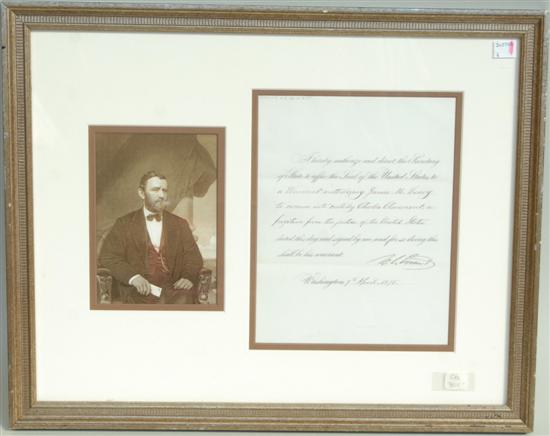 I hereby authorize and direct the Secretary
of State to affix the Seal of the United States to
a Warrant authorizing James M.
to receive into custody Charles a
fugitive from the justice of the United States
dated this day and signed by me and for so doing this
shall be his warrant.
U. S. Grant
Washington 7th 187